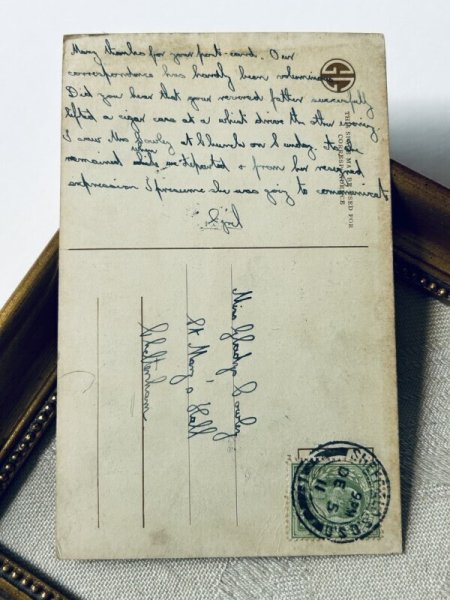 Many thanks for your post-card. Our
correspondence has hardly been voluminous
Did you hear that your revered father successfully
lifted a cigar case at a whist drive the other evening.
I saw Mrs Gowley at Church on Sunday. to-d
remained departed & from her reverend
expression I presume she was going to communicat
THIS SPACE MAY BE USED FOR
CORRESPONDENCE
Miss Gladys Gowley
St Mary's Hall
Cheltenham
9 PM
DE 5
11
S.O.